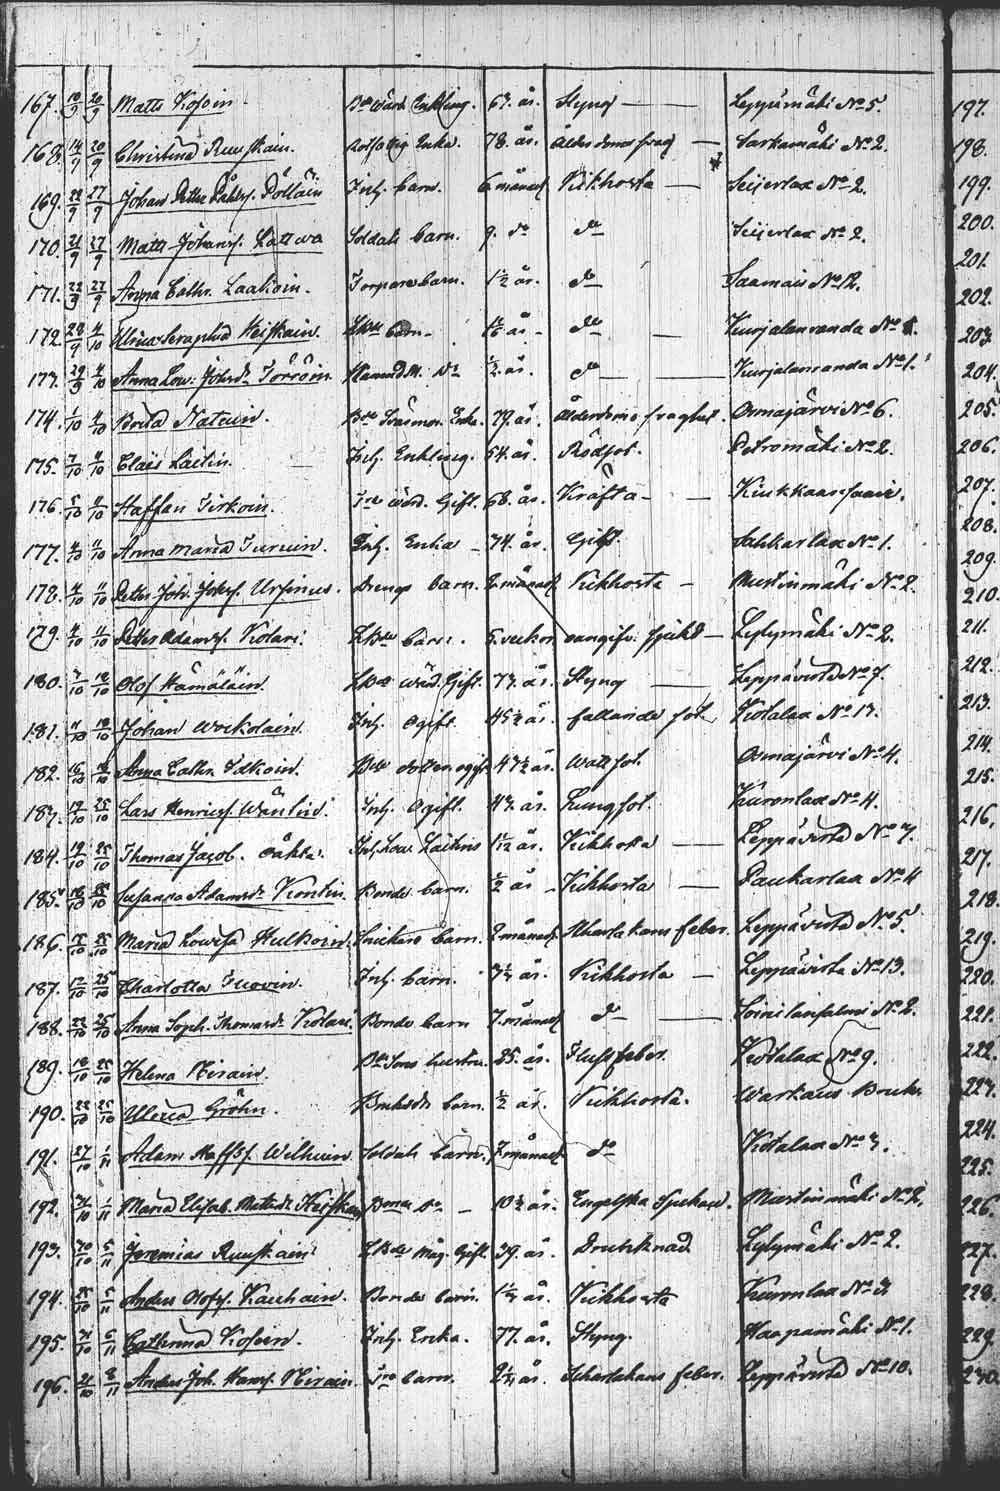 167. 10/9 20/9 Matts Kosoin. Bde wärd Enkling. 67. år. Styng Leppämäki No 5. 197.
168. 14/9 20/9 Christina Ruuskain. Rotfattig Enka. 78. år. Ålderdomsswag Sarkamäki No 2. 198.
169. 22/9 27/9 Johan Petter Påhlss. Pöllöin Inh. barn. 6 månad Kikhosta Seijerlax No 2. 199.
170. 21/9 27/9 Matts Johanss. Lättwa Soldats barn. 9. do do Seijerlax No 2. 200.
171. 22/9 27/9 Anna Cathr. Laakoin. Torpare barn. 1 1/2 år. do Saamais No 12. 201.
172. 28/9 4/10 Ulrica Seraphia Heiskain. LBde barn år do Kurjalanranda No 202.
173. 29/9 4/10 Anna Low: Johsdr Törröin. Hemmdm. do 1/2 år. do Kurjalanranda No 1. 203.
174. 1/10 4/10 Brita Natuin. Bde Enka. 79. år. Ålderdoms swaghet. Osmajärvi No 6. 204.
175. 7/10 4/10 Claës Laitin. Inh. Enkling. 54. år. Rödsot. Petromäki No 2. 205.
176. 5/10 11/10 Staffan Tirkoin. Tre wärd. Gift. 68. år. Kräfta Kiukkaansaari. 206.
177. 4/10 11/10 Anna Maria Turuin. Inh. Enka 74. år. Gikt. Sahkarlax No 1. 207.
178. 4/10 11/10 Petter Joh. Johss. Ursinus. Drengs barn. 2 månad Kikhosta Mustinmäki No 2. 208.
179. 4/10 11/10 Petter Adamss. Kolari. LBde barn. 5. veckor oangifv. sjukd Lylymäki No 2. 209.
180. 7/10 18/10 Olof Hämäläin. LBde wärd. Gift. 73. år. Styng Leppävirta No 7. 210.
181. 11/10 18/10 Johan Wockolain. Inh. ogift. 45 1/2 år. fallande sot Kotalax No 13. 211.
182. 16/10 18/10 Anna Cathr. Idkoin. Bde dotter ogift 47 1/2 år. Wattsot. Osmajärvi No 4. 212.
183. 19/10 25/10 Lars Henricss. Wäntin. Inh. Ogift. 47. år. Lungsot. Kuronlax No 4. 213.
184. 19/10 25/10 Thomas Jacob. Inh. Low. Laitins 1 1/12 år. Kikhosta Leppävirta No 7. 214.
185. 18/10 25/10 Susanna Adamsdr Kontin. Bonde barn. 1/2 år Kikhosta Paukarlax No 4 215.
186. 25/10 Maria Lowisa Hulkoin. Snickare barn. 2 månad. Skarlakans feber. Leppävirta No 5. 216.
187. 17/10 25/10 Charlotta Tuovin. Inh. barn. 3 1/2 år. Kikhosta Leppävirta No 13. 217.
188. 22/10 25/10 Anna Soph. Thomasdr Kolari. Bonde barn 7. månad do Soinilansalmi No 2. 218.
189. 18/10 25/10 Helena Mirain. Bde Sons hustru. 25. år. Flussfeber. Kotalax No 9. 219.
190. 22/10 25/10 Ulrica Gröhn. Bruksdr barn. 1/2 år. Kikhosta. Warkaus Bruk. 220.
191. 27/10 1/11 Adam Staffss. Wilhuin. Soldats barn. 7. månad do Kotalax No 3. 221.
192. 31/10 1/11 Maria Elisab. Mattsdr Heiskain Bonde do 10 1/2 år. Engelska Sjukan. Mustinmäki No 2. 222.
193. 30/10 5/11 Jeremias Ruuskain LBde Måg. Gift. 39. år. Drunknad Lylymäki No 2. 223.
194. 28/10 5/11 Anders Olofss. Kauhain. Bonde barn. år. Kikhosta Kuronlax No 3 224.
195. 31/10 6/11 Cathrina Kosoin. Inh. Enka. 77. år. Styng. Haapamäki No 1. 225.
196. 21/10 8/11 Anders Joh. Hanss. Mirain. Tre barn. år. Scharlakans feber. Leppävirta No 10. 226.
227.
228.
229.
230.